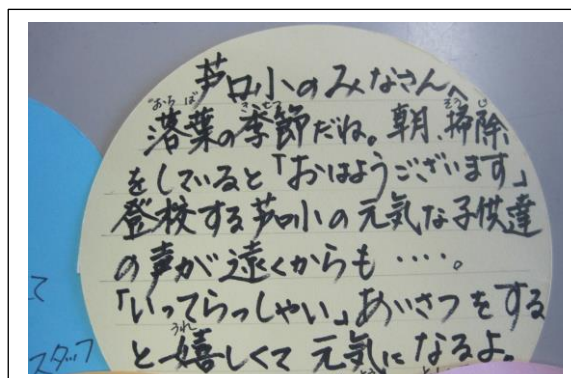 芦口小のみなさんへ
落葉の季節だね。朝、掃除
をしていると「おはようございます」
登校する芦口小の元気な子供達
の声が遠くからも‥‥。
「いってらっしゃい」あいさつをする
と嬉しくて元気になるよ。
て
スタッフ